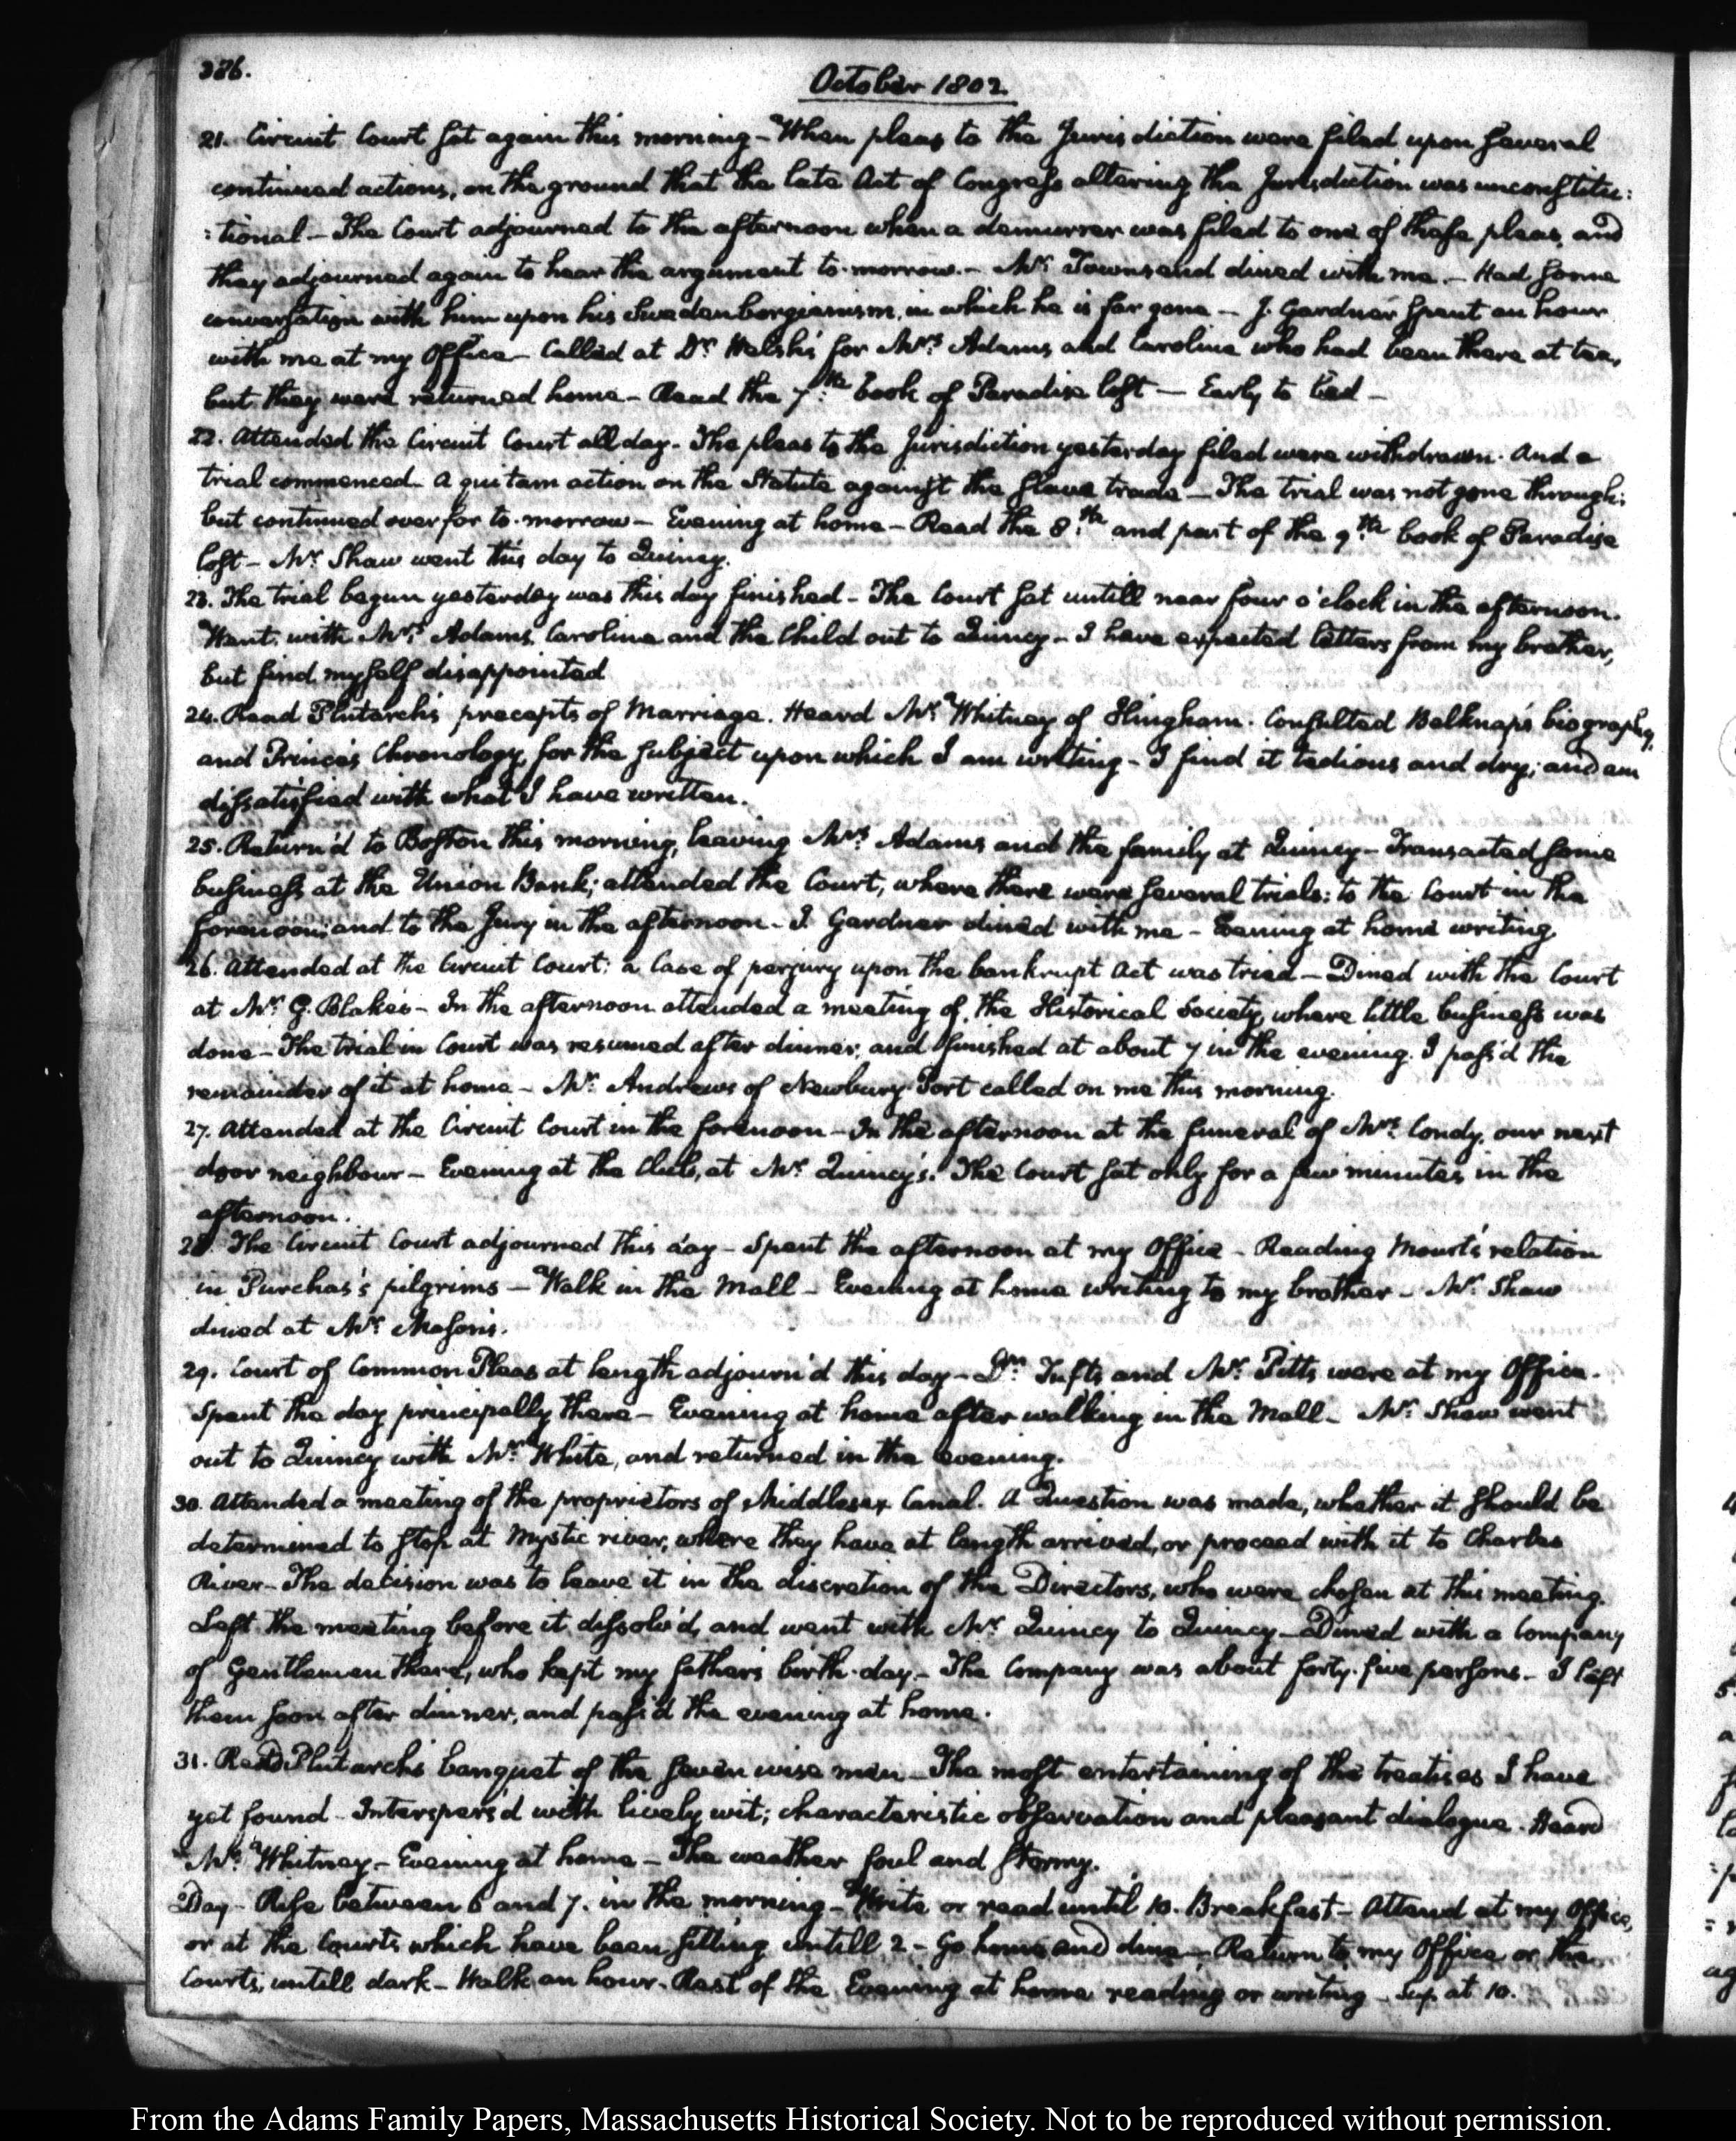 386.
October 1802.
21. Circuit Court sat again this morning - When pleas to the Jurisdiction were filed upon several
continued actions, on the ground that the late Act of Congress altering the Jurisdiction was unconstitu:
:tional - The Court adjourned to the afternoon when a demurrer was filed to one of these pleas, and
they adjourned again to hear the argument to-morrow. - Mr. Townsend dined with me. - Had some
conversation with him upon his Swedenborgianism, in which he is far gone - J. Gardner spent an hour
with me at my Office - Called at Dr. Welsh's for Mrs. Adams and Caroline who had been there at tea,
but they were returned home - Read the 7.th book of Paradise lost - Early to bed -
22. Attended the Circuit Court all day - The pleas to the Jurisdiction yesterday filed were withdrawn. And a
trial commenced - A qui tam action on the Statute against the slave trade - The trial was not gone through:
but continued over for to-morrow - Evening at home - Read the 8.th and part of the 9.th book of Paradise
lost - Mr. Shaw went this day to Quincy.
23. The trial begun yesterday was this day finished - The Court sat untill near four o'clock in the afternoon.
Went with Mrs. Adams, Caroline and the Child out to Quincy - I have expected letters from my brother,
but find myself disappointed
24. Read Plutarch's precepts of Marriage. Heard Mr. Whitney of Hingham. Consulted Belknap's biography,
and Prince's Chronology, for the subject upon which I am writing - I find it tedious and dry; and am
dissatisfied with what I have written.
25. Return'd to Boston this morning, leaving Mrs. Adams and the family at Quincy - Transacted some
business at the Union Bank; attended the Court, where there were several trials: to the Court in the
forenoon; and to the Jury in the afternoon - J. Gardner dined with me - Evening at home writing
26. Attended at the Circuit Court: a Case of perjury upon the bankrupt Act was tried - Dined with the Court
at Mr. G. Blake's - In the afternoon attended a meeting of the Historical Society, where little business was
done - The trial in Court was resumed after dinner, and finished at about 7 in the evening. I pass'd the
remainder of it at home - Mr. Andrews of Newbury-Port called on me this morning.
27. Attended at the Circuit Court in the forenoon - In the afternoon at the funeral of Mrs. Condy, our next
door neighbour - Evening at the Club, at Mr. Quincy's. The Court sat only for a few minutes in the
afternoon.
28. The Circuit Court adjourned this day - Spent the afternoon at my Office - Reading Mourt's relation
in Purchas's pilgrims - Walk in the Mall - Evening at home writing to my brother - Mr. Shaw
dined at Mr. Mason's.
29. Court of Common Pleas at length adjourn'd this day - Dn. Tufts and Mr. Pitts were at my Office.
Spent the day principally there - Evening at home after walking in the Mall - Mr. Shaw went
out to Quincy with Mr. White, and returned in the evening.
30. Attended a meeting of the proprietors of Middlesex Canal. A Question was made, whether it should be
determined to stop at Mystic river, where they have at length arrived, or proceed with it to Charles
River - The decision was to leave it in the discretion of the Directors, who were chosen at this meeting.
Left the meeting before it dissolv'd, and went with Mr. Quincy to Quincy - Dined with a Company
of Gentlemen there, who kept my father's birth-day - The Company was about forty-five persons - I left
them soon after dinner, and pass'd the evening at home.
31. Read Plutarch's banquet of the seven wise men - The most entertaining of the treatises I have
yet found - Interspers'd with lively wit; characteristic observation and pleasant dialogue. Heard
Mr. Whitney - Evening at home - The weather foul and stormy.
Day - Rise between 6 and 7. in the morning - Write or read until 10. Breakfast - Attend at my Office,
or at the Courts which have been sitting untill 2 - Go home and dine - Return to my Office or the
Courts, untill dark - Walk an hour - Rest of the Evening at home reading or writing - Sup at 10.
From the Adams Family Papers, Massachusetts Historical Society. Not to be reproduced without permission.